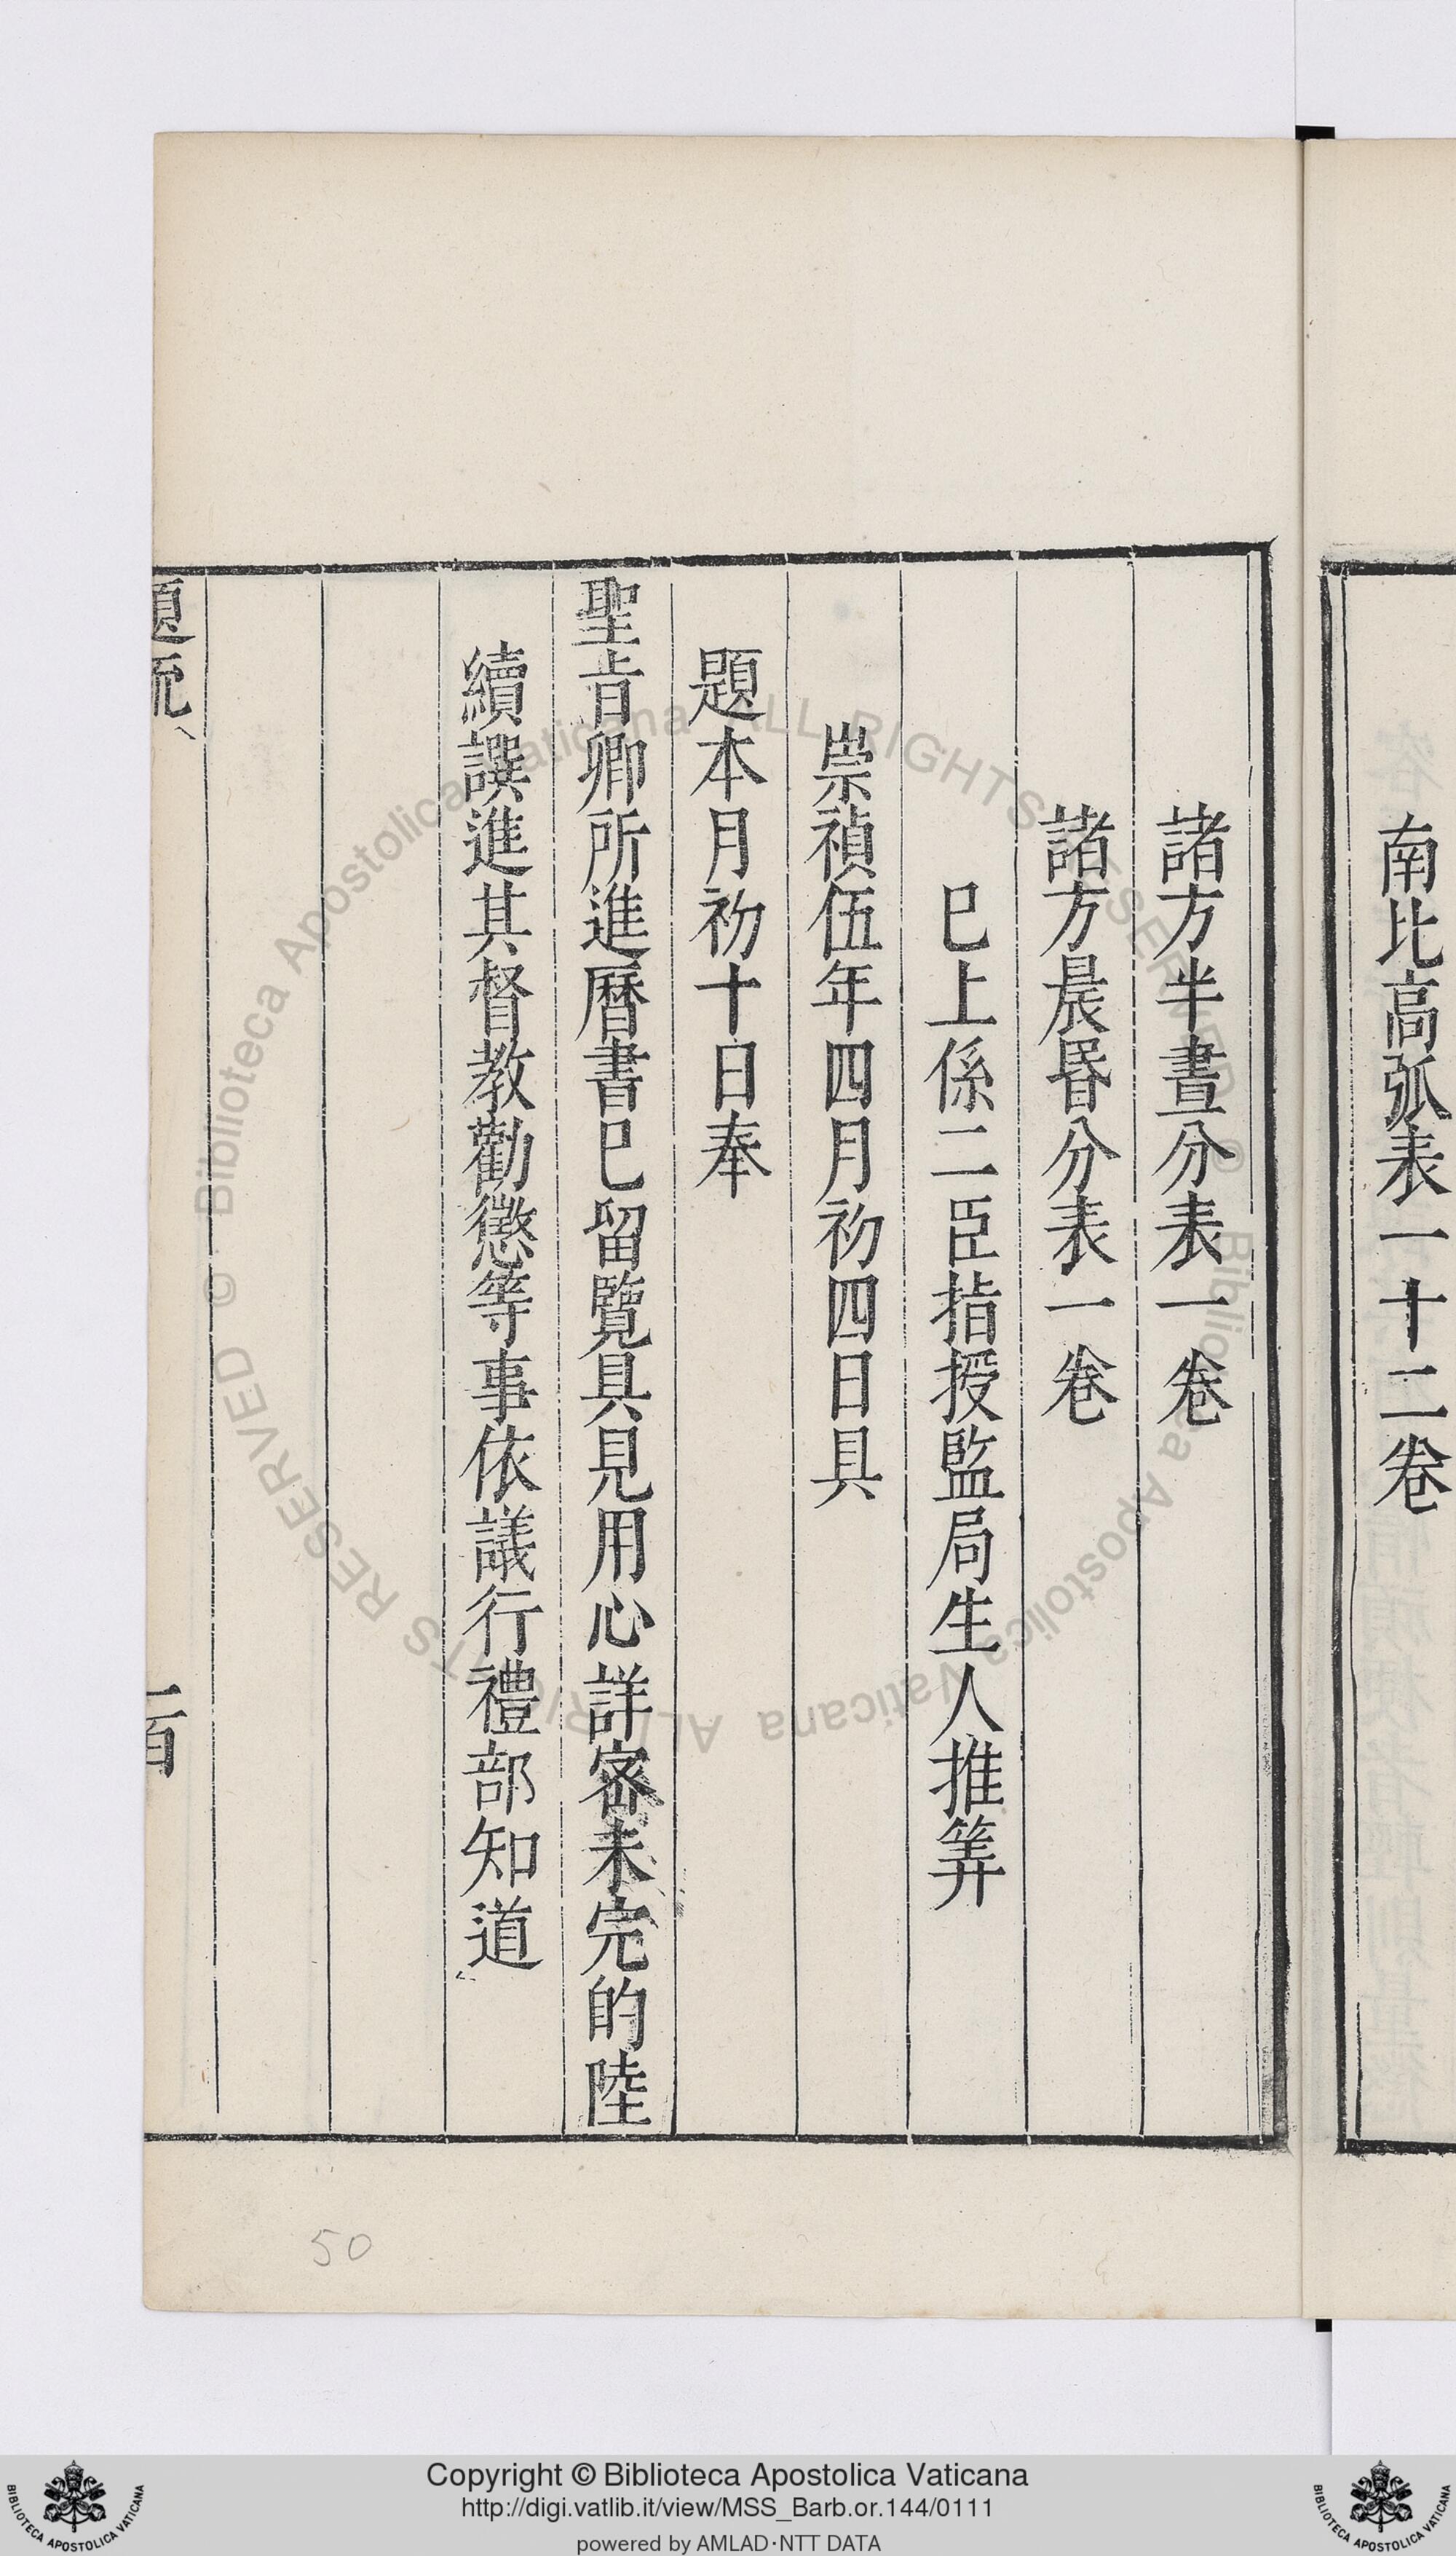 南北高弧表一十二卷
諸方半晝分表一卷
諸方晨昏分表一卷
巳上係二臣指授監局生人推筭
崇禎伍年四月初四日具
題本月初十日奉
聖旨卿所進曆書巳留覽具見用心詳密未完的陸
續譔進其督教勸懲等事依議行禮部知道
題疏
一百
50
© Biblioteca Apostolica Vaticana ALL RIGHTS RESERVED
© Biblioteca Apostolica Vaticana ALL RIGHTS RESERVED
Copyright © Biblioteca Apostolica Vaticana
http://digi.vatlib.it/view/MSS_Barb.or.144/0111
powered by AMLAD·NTT DATA
BIBLIOTECA APOSTOLICA VATICANA
BIBLIOTECA APOSTOLICA VATICANA